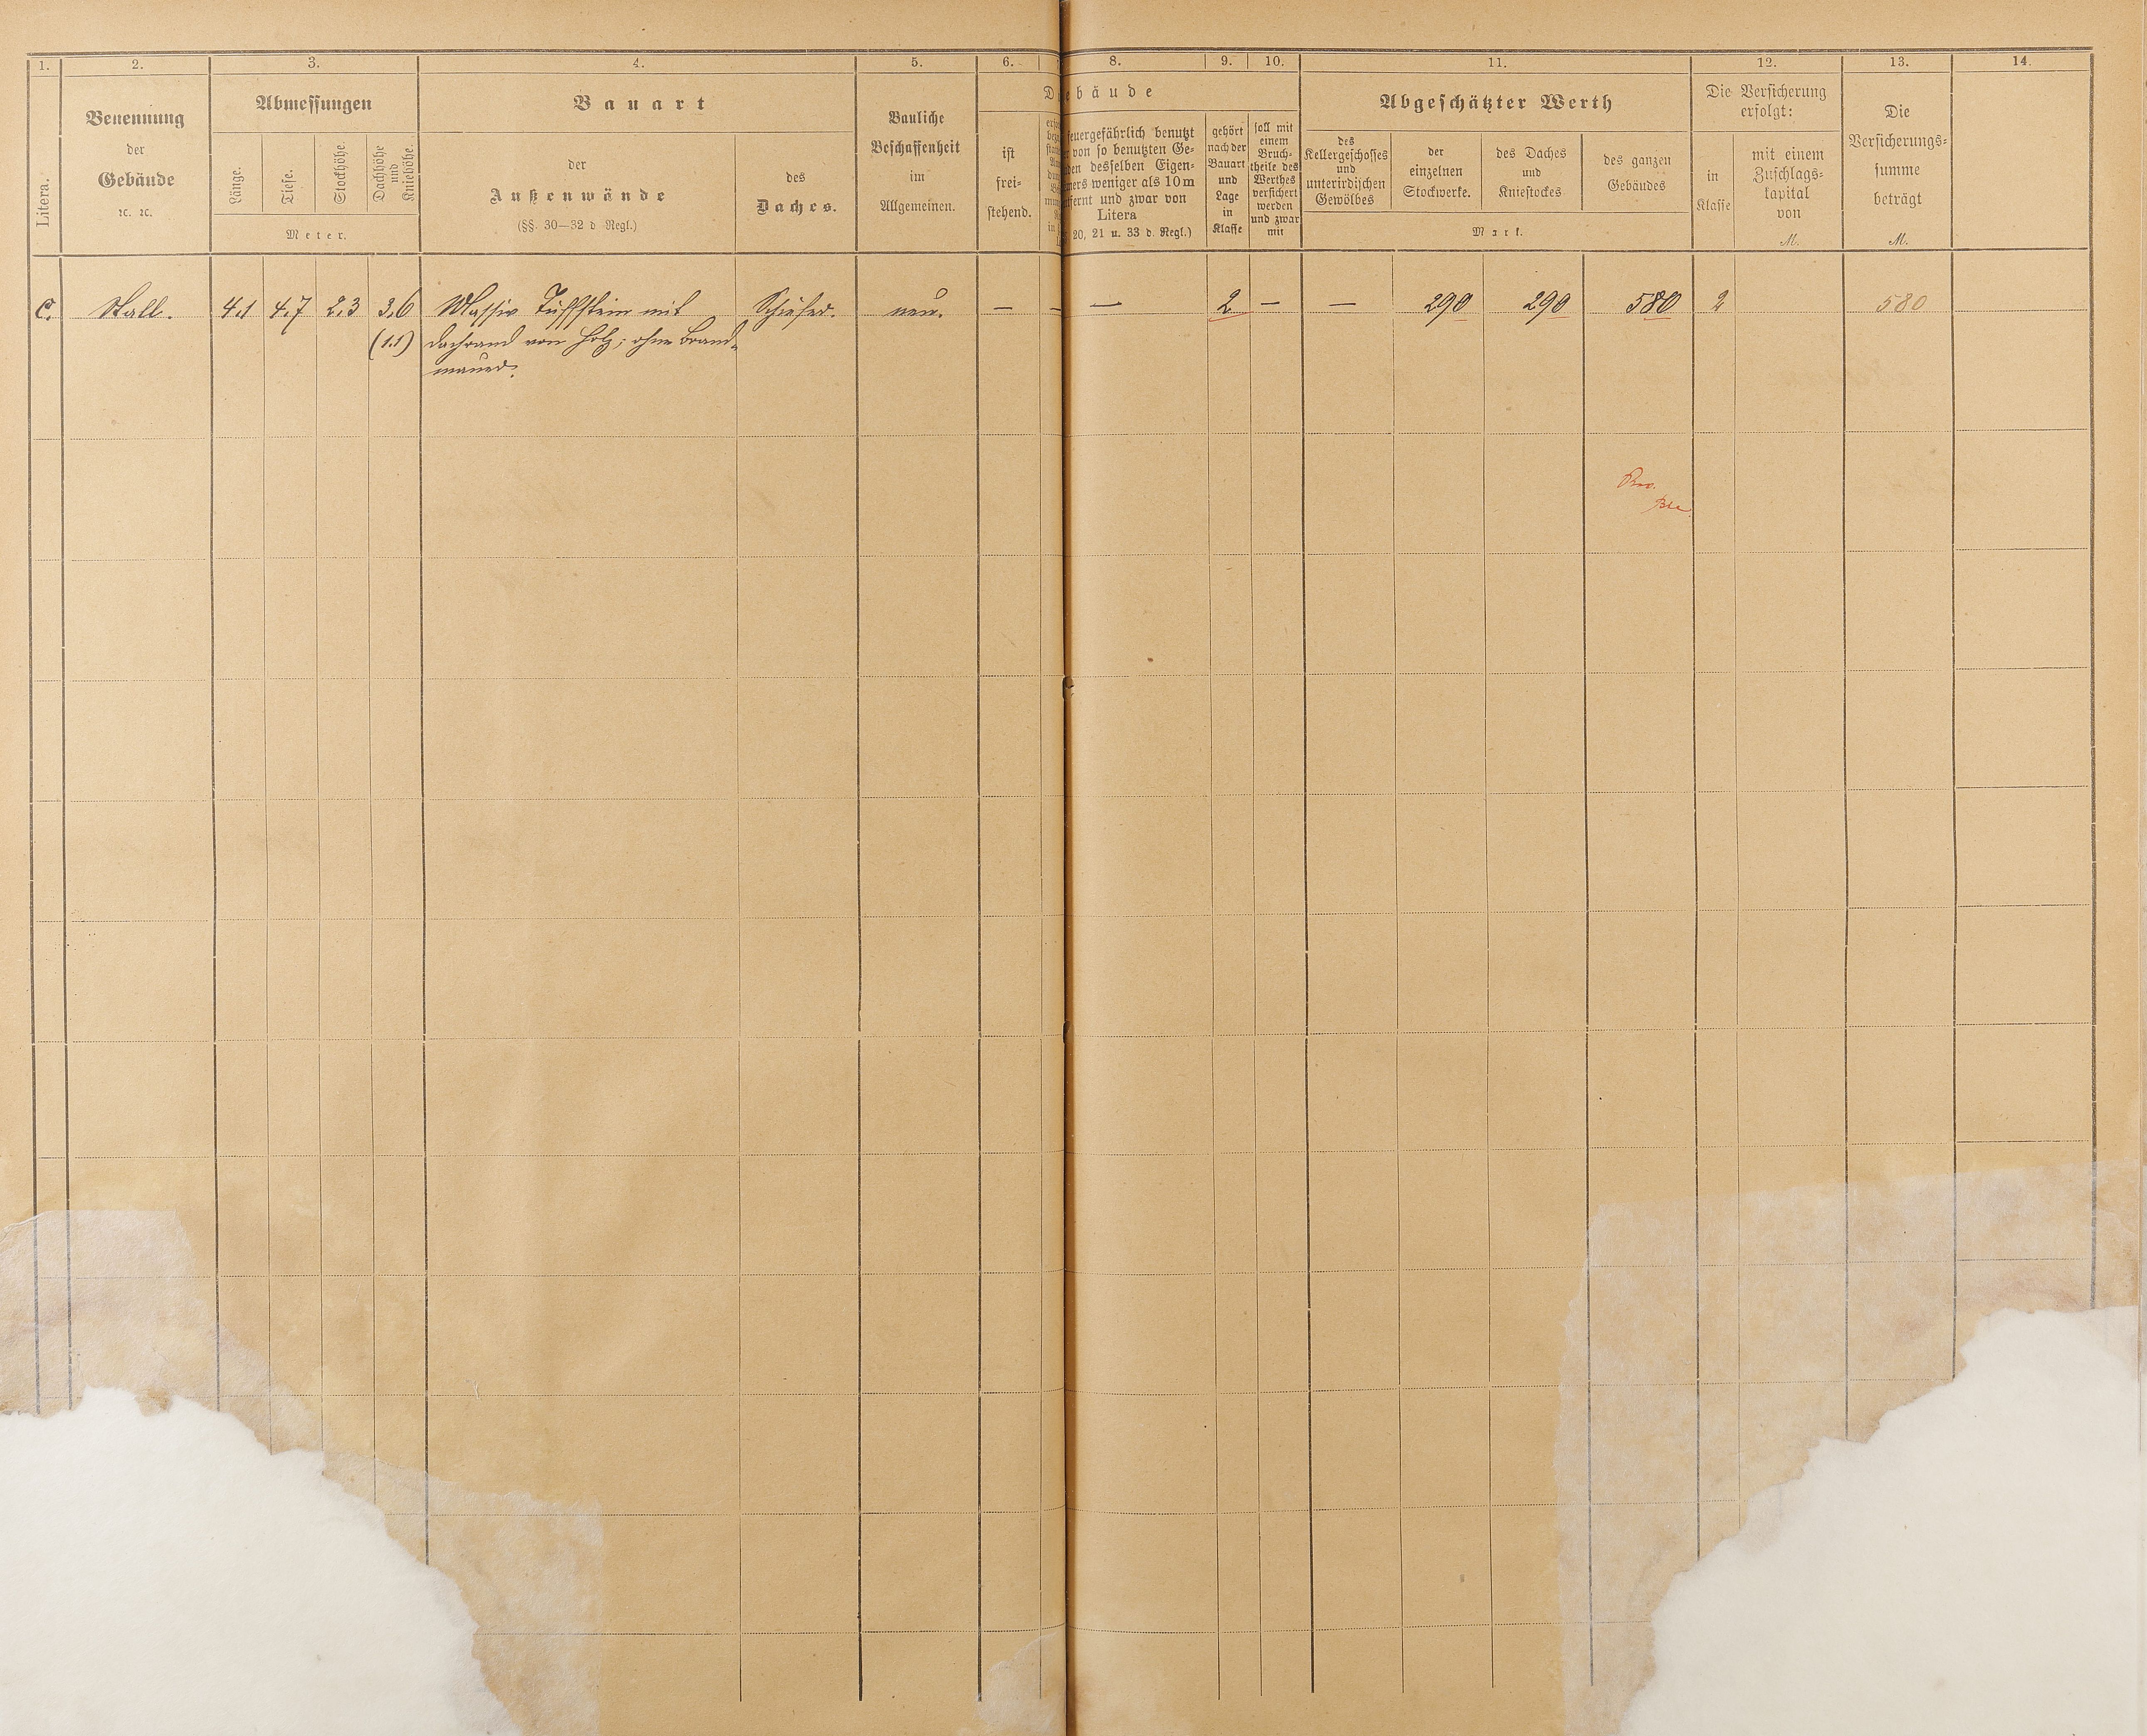 1. 2. 3. 4. 5. 6. 8. 9. 10. 11. 12. 13. 14.
Litera.
Benennung
der
Gebäude
ꝛc. ꝛc.
Abmessungen
Länge.
Tiefe.
Stockhöhe.
Dachhöhe
und
Kniehöhe.
Meter.
Bauart
der
Außenwände
(§§. 30—32 d Regl.)
des
Daches.
Bauliche
Beschaffenheit
im
Allgemeinen.
D
ebäude
ist
frei-
stehend.
feuergefährlich benutzt
von so benutzten Ge-
den desselben Eigen-
mers weniger als 10 m
tfernt und zwar von
Litera
20, 21 u. 33 d. Regl.)
gehört
nach der
Bauart
und
Lage
in
Klasse
soll mit
einem
Bruch-
theile des
Werthes
versichert
werden
und zwar
mit
Abgeschätzter Werth
des
Kellergeschosses
und
unterirdischen
Gewölbes
der
einzelnen
Stockwerke.
des Daches
und
Kniestockes
des ganzen
Gebäudes
Mark.
Die Versicherung
erfolgt:
in
Klasse
mit einem
Zuschlags-
kapital
von
M.
Die
Versicherungs-
summe
beträgt
M.
C. Stall. 4,1 4,7 2,3 3,6 Massiv Tuffstein mit Schiefer. neu. — — — 2 — — 290 290 580 2 580
(1.1) Dachrand von Holz; ohne Brand-
mauer.
Rev.